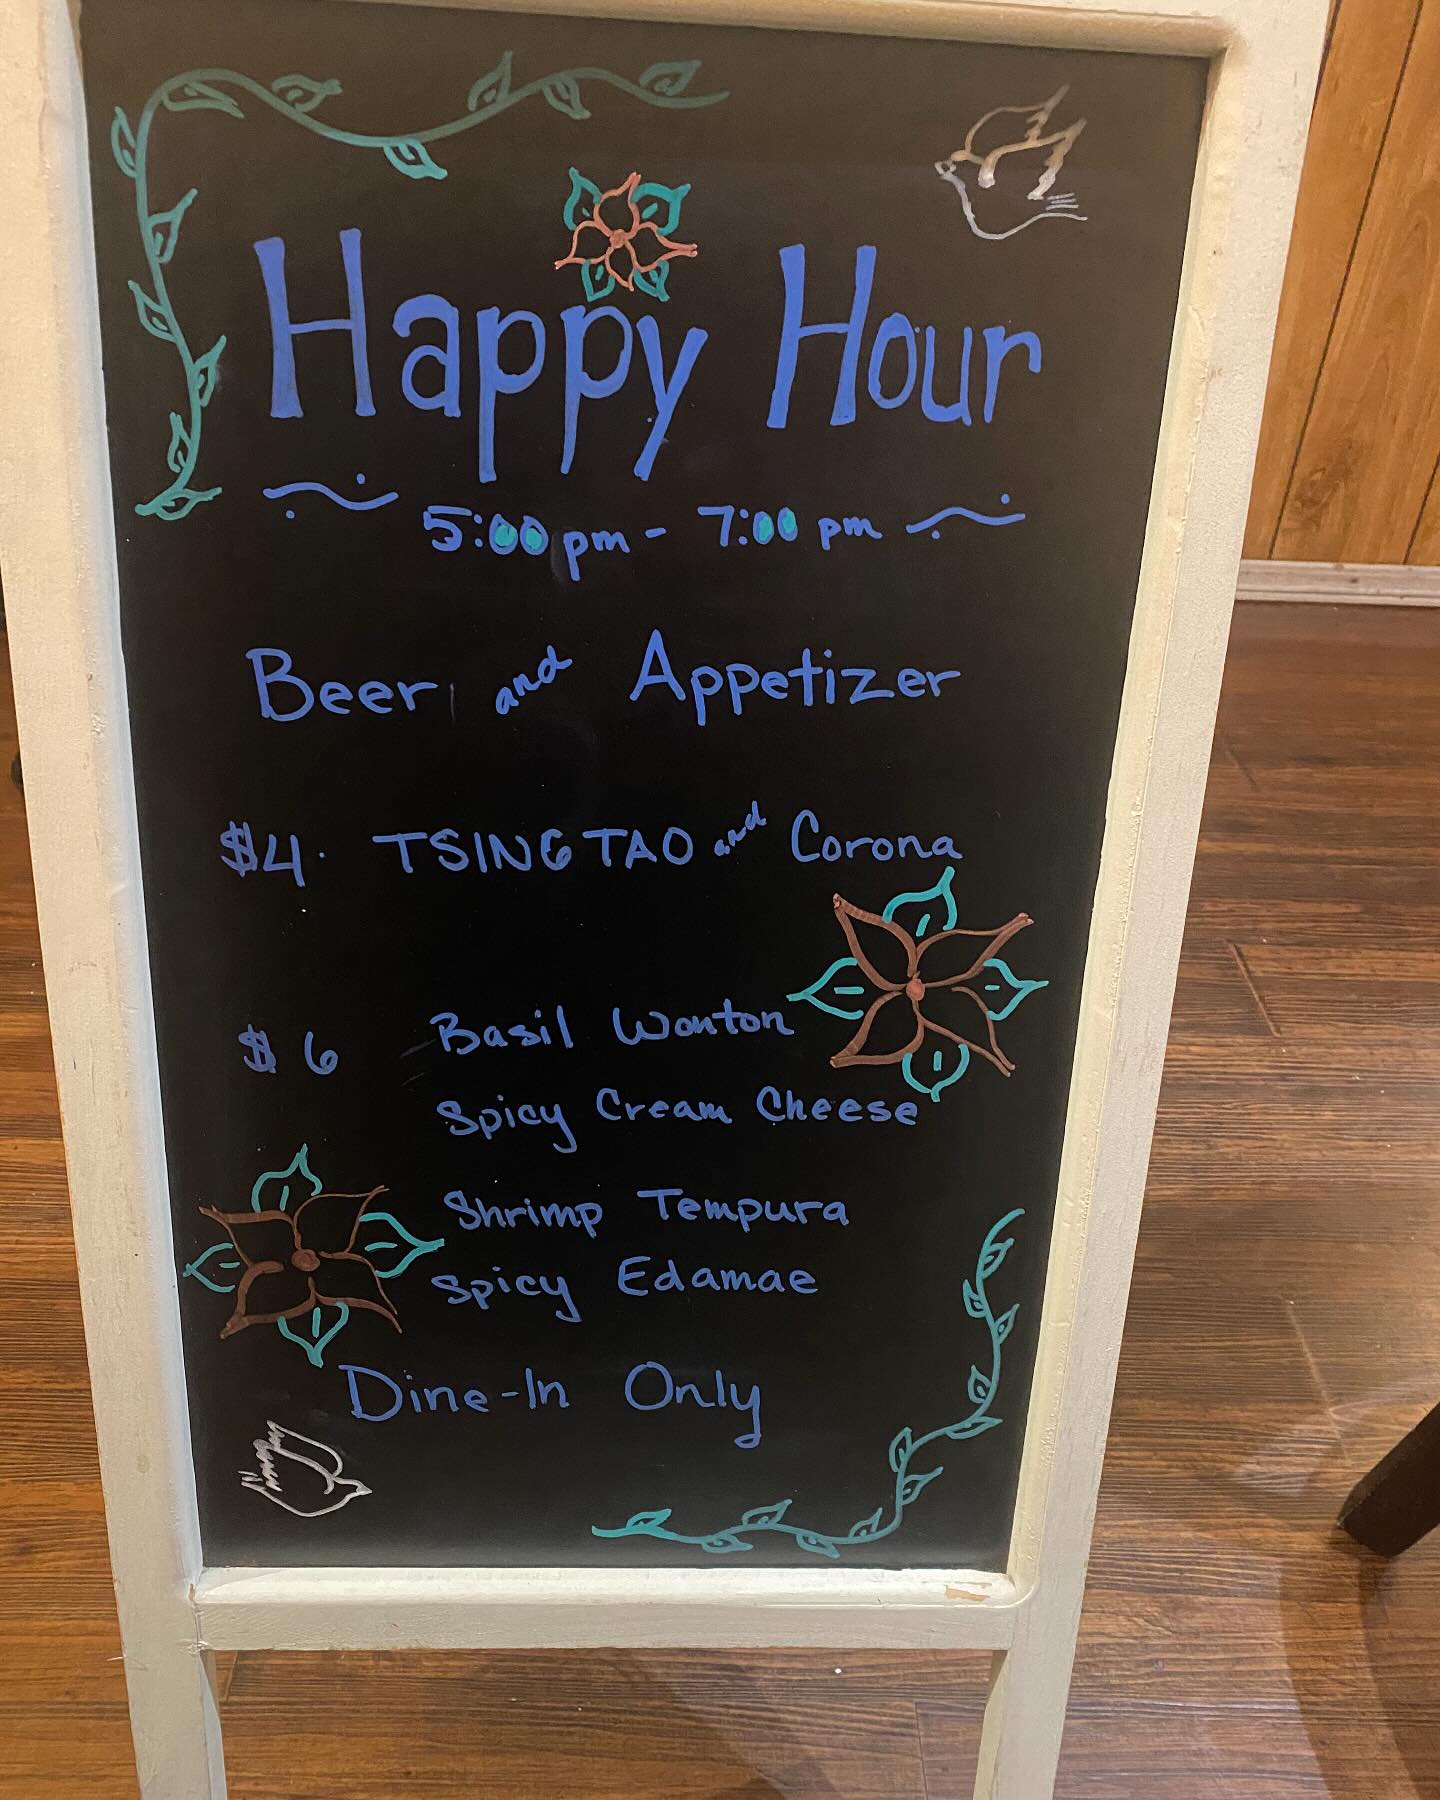 Happy Hour
5:00 pm - 7:00 pm
Beer and Appetizer
$4. TSINGTAO and Corona
$6 Basil Wonton
Spicy Cream Cheese
Shrimp Tempura
Spicy Edamae
Dine-In Only